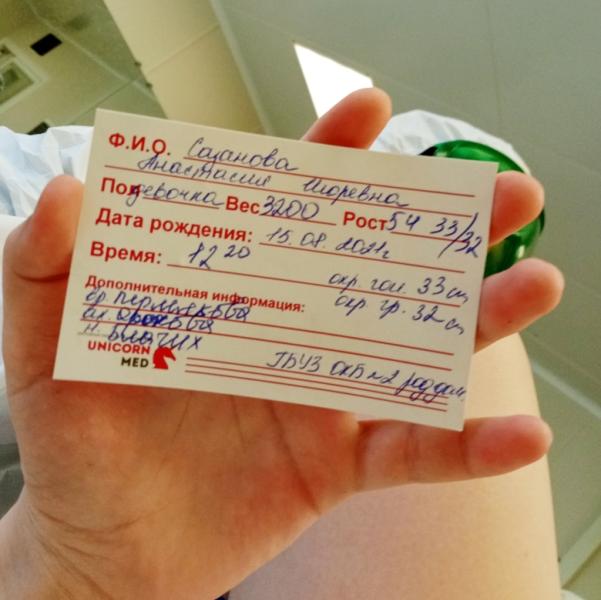 Ф.И.О. Сазанова
Анастасия Игоревна
Пол девочка Вес 3200 Рост 54 33/32
Дата рождения: 15.08.2021г
Время: 12 20
окр. гол. 33 см
Дополнительная информация: окр. гр. 32 см
вр.
ак.
н.
UNICORN
MED
ГБУЗ ОКБ №2 роддом